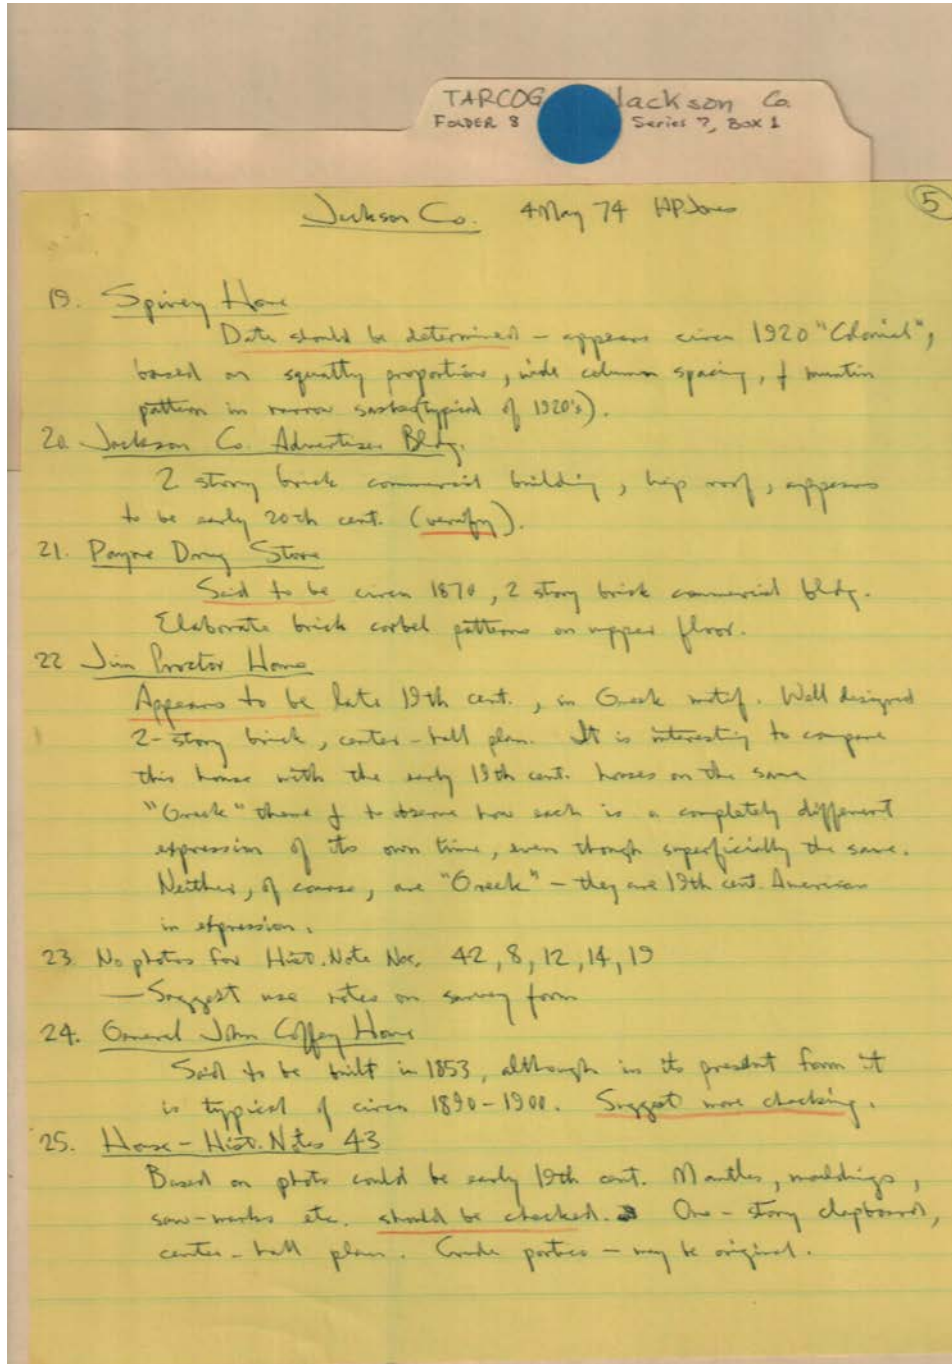 TARCOG Jackson Co.
FOLDER 8 Series 7, Box 1
Jackson Co. 4 May 74 HPJones
5
19. Spivey Home
Date should be determined – appears circa 1920 "Colonial",
based on squatty proportions, wide column spacing, & muntin
pattern in narrow sashes (typical of 1920's).
20. Jackson Co. Advertiser Bldg.
2 story brick commercial building, hip roof, appears
to be early 20th cent. (verify).
21. Payne Drug Store
Said to be circa 1870, 2 story brick commercial bldg.
Elaborate brick corbel patterns on upper floor.
22 Jim Proctor Home
Appears to be late 19th cent., in Greek motif. Well designed
2-story brick, center-hall plan. It is interesting to compare
this house with the early 19th cent. houses on the same
"Greek" theme & to observe how each is a completely different
expression of its own time, even though superficially the same.
Neither, of course, are "Greek" – they are 19th cent. American
in expression.
23. No photos for Hist. Note Nos. 42, 8, 12, 14, 19
— Suggest use notes on survey form
24. General John Coffey Home
Said to be built in 1853, although in its present form it
is typical of circa 1890-1900. Suggest more checking.
25. House – Hist. Notes 43
Based on photo could be early 19th cent. Mantles, mouldings,
saw-marks etc. should be checked. One-story clapboard,
center-hall plan. Crude portico – may be original.